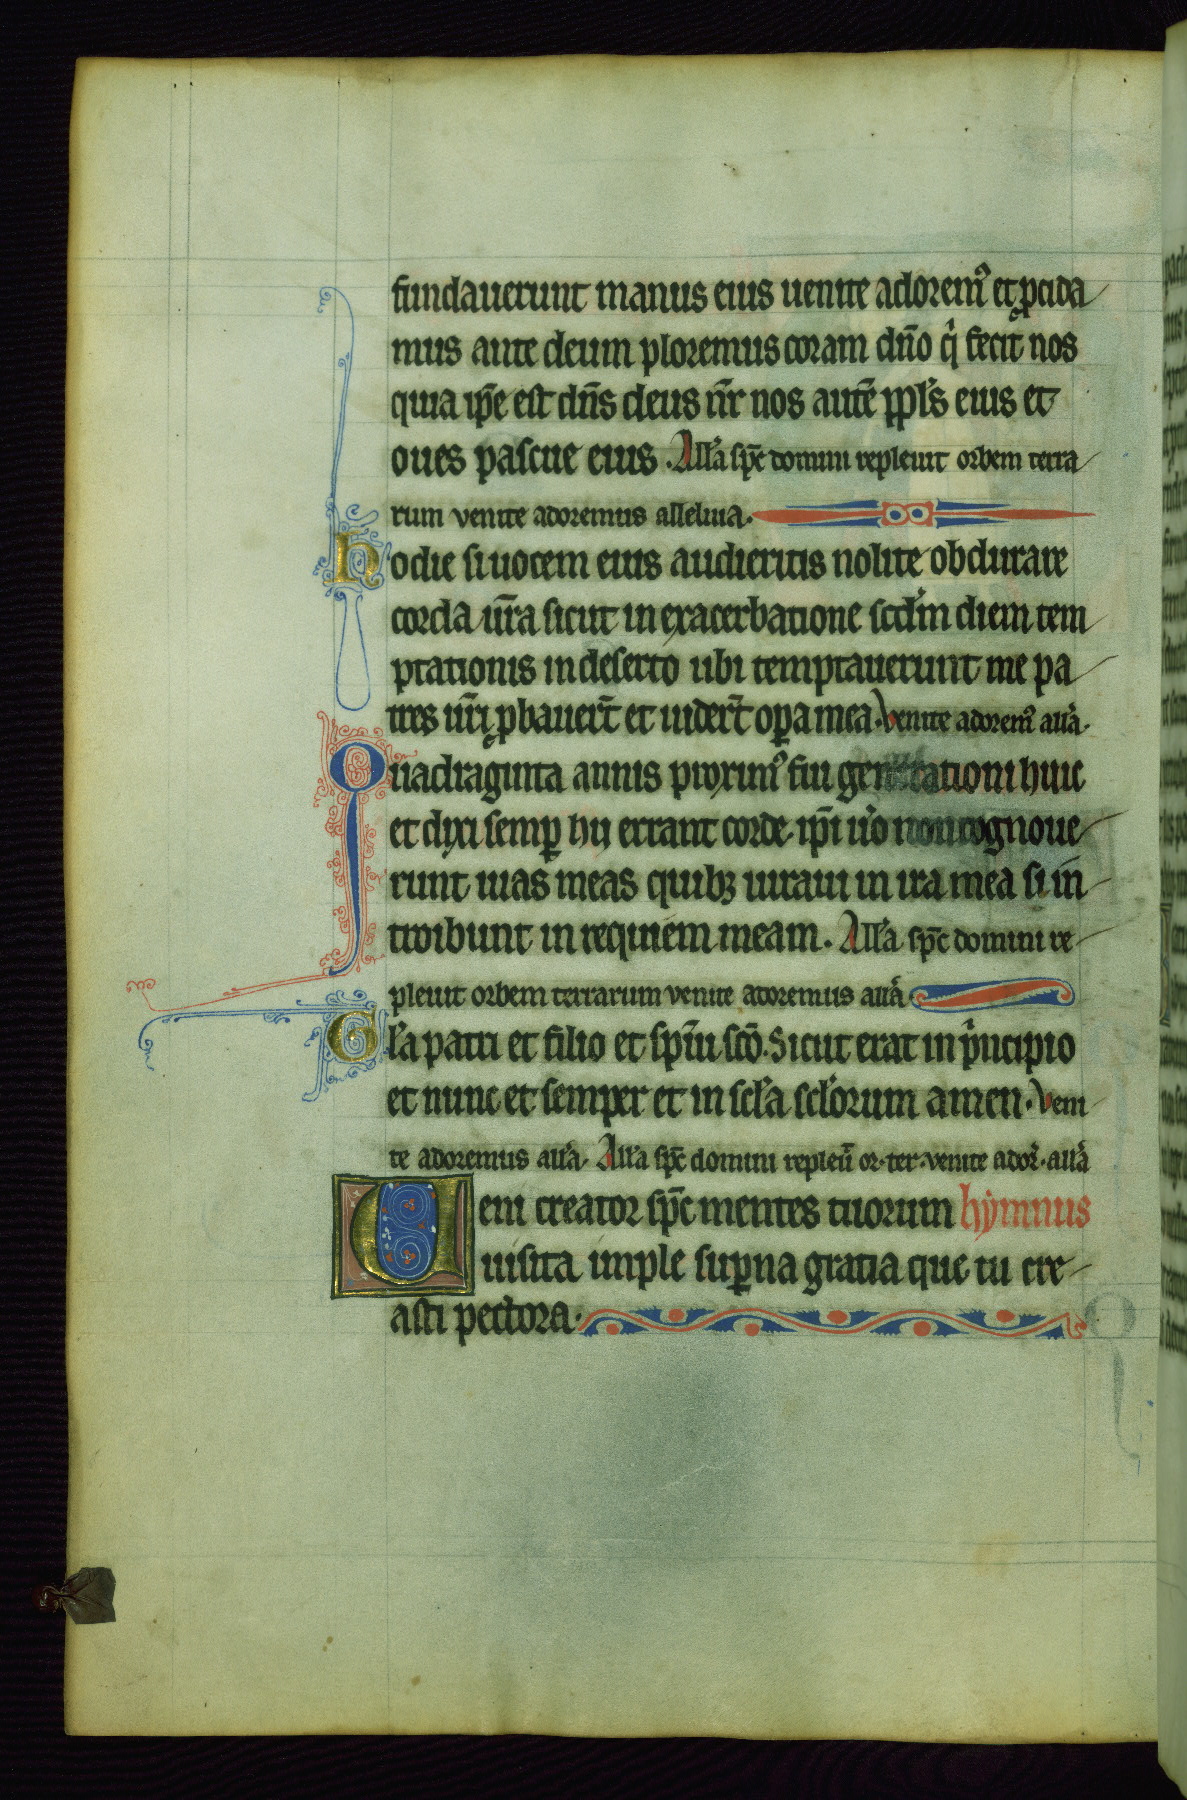 fundauerunt manus eius uenite adorem⁹ et p̲cida
mus ante deum ploremus coram dn̄o qͥ fecit nos
quia ip̄e est dn̄s deus nr̄ nos autē ppl̓s eius et
oues pascue eius. All̓a sp̄c domini repleuit orbem terra
rum venite adoremus alleluia.
Hodie si uocem eius audieritis nolite obdurare
corda ur̄a sicut in exacerbatione scd̓m diem tem
ptationis in deserto ubi temptauerunt me pa
tres ur̄i ꝓbauer̄t et uider̄t oꝑa mea. Venite adorem⁹ all̓a.
Quadraginta annis proxim⁹ fui generationi huic
et dixi semꝑ hii errant corde. ip̄i u̓o non cognoue
runt uias meas quibꝫ iuraui in ira mea si in
troibunt in requiem meam. All̓a sp̄c domini re
pleuit orbem terrarum venite adoremus all̓a
Gl̓a patri et filio et sp̄iui scō. Sicut erat in pͥncipio
et nunc et semper et in scl̓a scl̓orum amen. Veni
te adoremus all̓a. All̓a sp̄c domini repleū or. ter. venite ador̓. all̓a
Veni creator sp̄c mentes tuorum hymnus
uisita imple suꝑna gratia que tu cre
asti pectora.